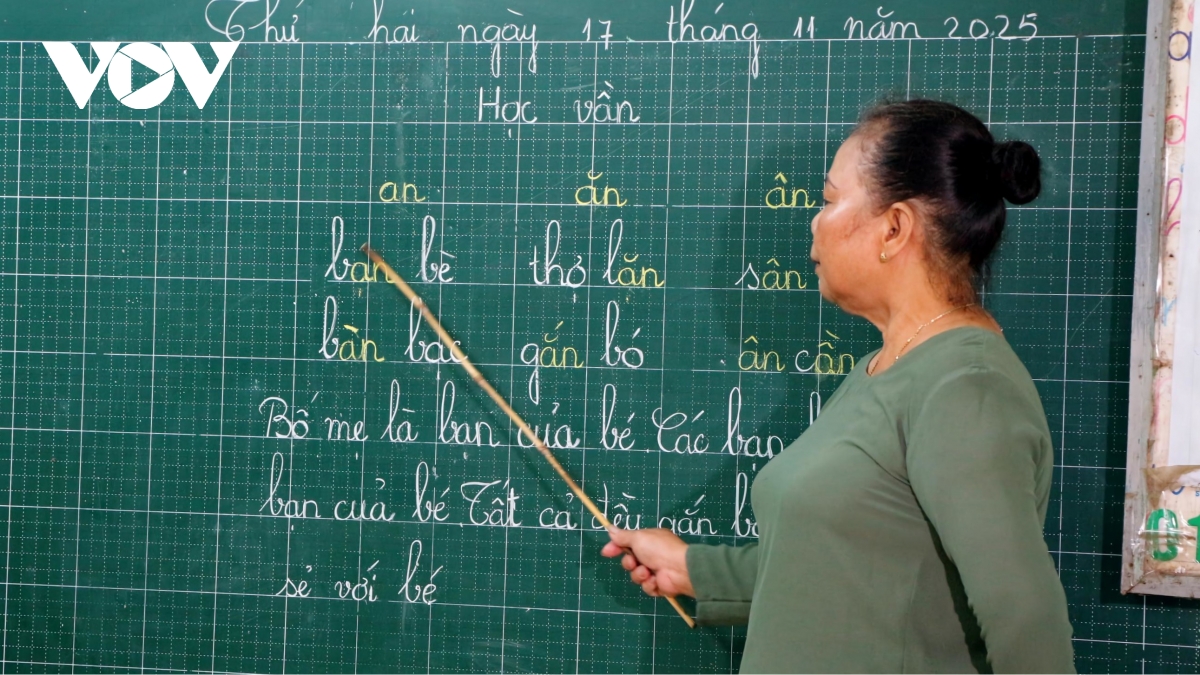 Thứ hai ngày 17 tháng 11 năm 2025
VOV
Học vần
an ăn ân
bạn bè thỏ lăn sân
bàn bạc gắn bó ân cần
Bố mẹ là bạn của bé. Các bạn
bạn của bé. Tất cả đều gắn
sẻ với bé